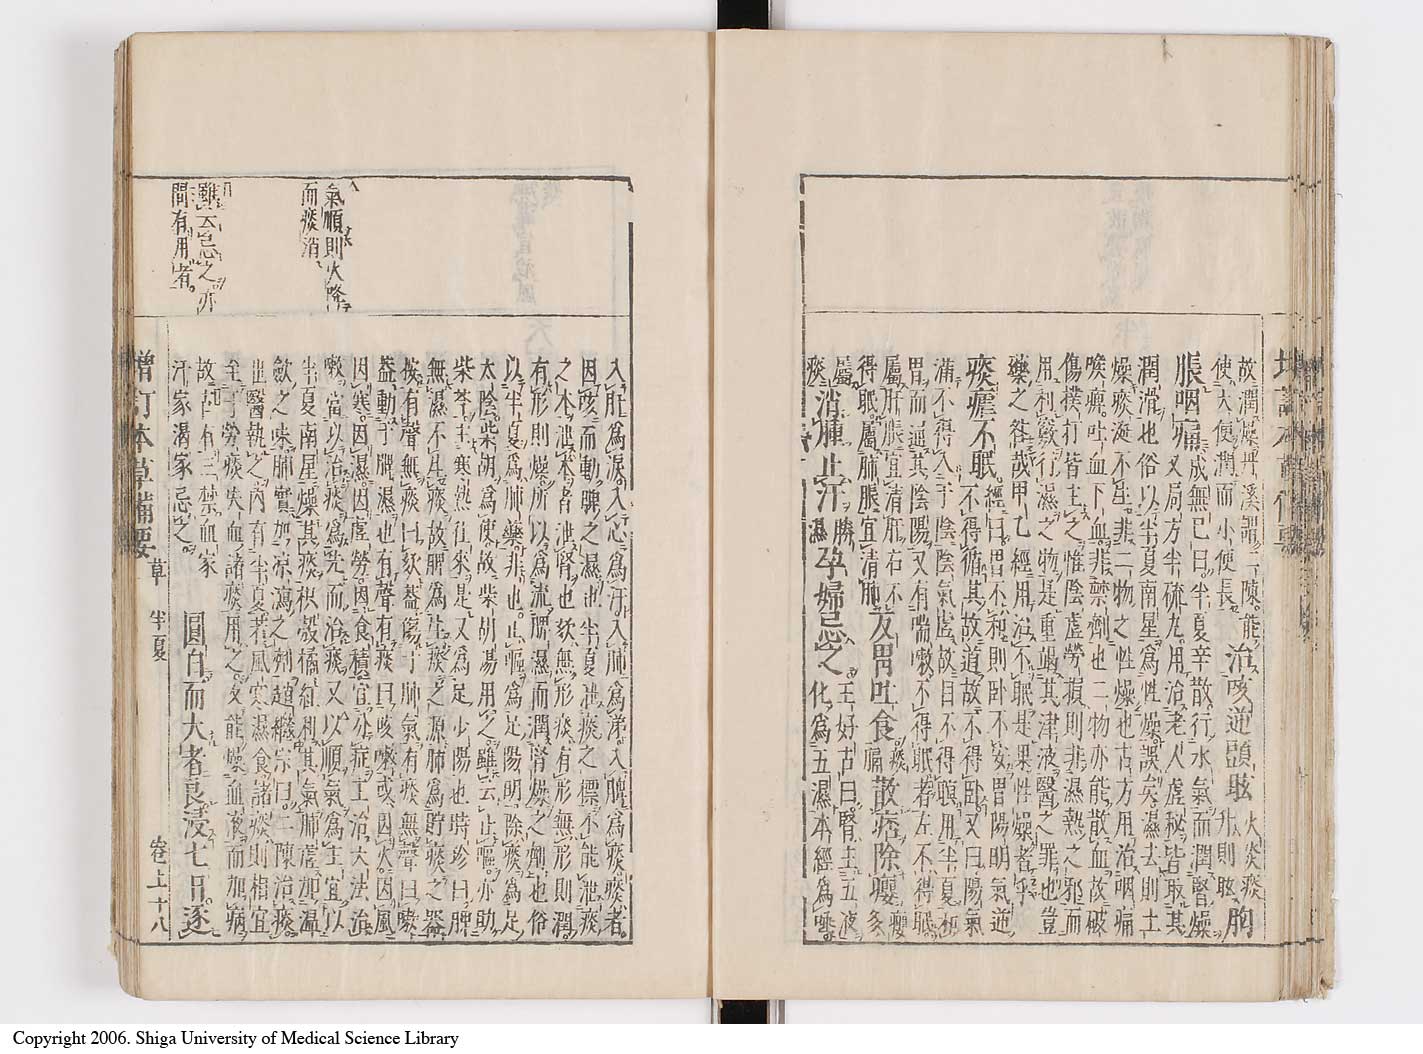 故潤燥丹溪謂二陳能
使大便潤而小便長。
治咳逆頭眩
火炎痰
升則眩
胸
脹咽痛
成無已曰。半夏辛散行水氣而潤腎燥
又局方半硫丸。用治老人虛秘皆取其
潤滑也俗以半夏南星為性燥誤矣濕去則土
燥痰涎不生。非二物之性燥也古方用治咽痛
喉痺吐血下血非禁劑也二物亦能散血故破
傷撲打皆主之。惟陰虛勞損則非濕熱之邪而
用利竅行濕之物是重竭其津液醫之罪也豈
藥之咎哉甲乙經用治不眠是果性燥者乎
痰瘧不眠
經曰。胃不和則卧不安胃陽明氣逆
不得循其故道故不得卧又曰陽氣
滿不得入于陰陰氣虛故目不得瞑用半夏和
胃而通其陰陽又有喘嗽不得眠者左不得眠
屬肝脹宜清肝右不
得眠。屬肺脹宜清肺
反胃吐食
痰
膈
散痞除癭
癭
多
屬
痰
消腫止汗
勝
濕
孕婦忌之
王好古曰。腎主五液
化為五濕本經為唾
氣順則火降
而痰消。
雖云忌之亦
間有用者。
入肝為淚入心為汗入肺為涕。入脾為痰痰者。
因咳而動脾之濕也半夏泄痰之標不能泄痰
之本泄本者泄腎也欬無形痰有形無形則潤
有形則燥所以為流脾濕而潤腎燥之劑也俗
以半夏為肺藥非也。止嘔為足陽明除痰為足
太陰柴胡為使故柴胡湯用之雖云止嘔亦助
柴芩主寒熱往來是又為足少陽也時珍曰脾
無濕不生痰故脾為生痰之源肺為貯痰之器
按有聲無痰曰欬蓋傷于肺氣有痰無聲曰嗽
蓋動于脾濕也有聲有痰曰咳嗽或因火。因風
因寒。因濕。因虛勞。因食積宜分症主治大法治
嗽當以治痰為先而治痰又以順氣為主宜以
半夏南星燥其痰枳殼橘紅利其氣肺虛加溫
歛之味肺實加涼瀉之劑趙繼宗曰。二陳治痰。
世醫執之內有半夏若風寒濕食諸痰則相宜
至于勞痰失血諸痰用之反能燥血液而加病
故古有三禁血家
汗家渴家忌之。
圓白而大者良浸七日逐
增訂本草備要 草 半夏 卷上 十八